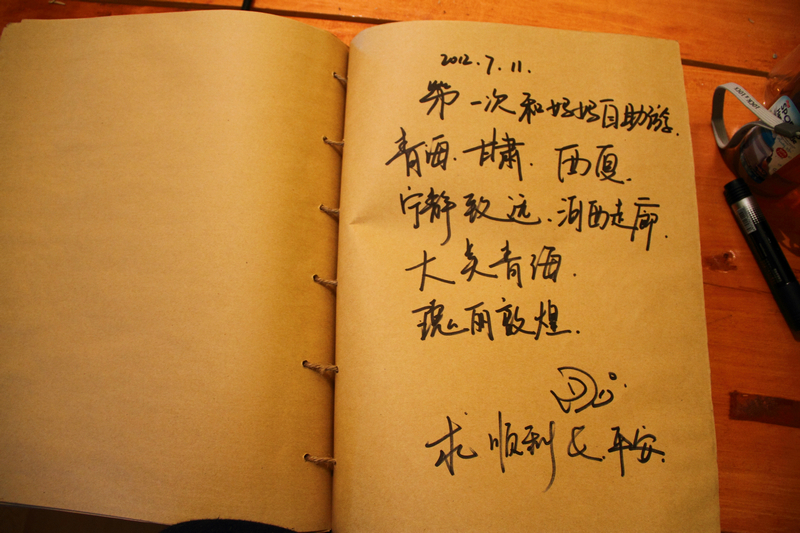 2012.7.11.
第一次和妈妈自助游.
青海.甘肃.西夏.
宁静致远.河西走廊.
大美青海.
瑰丽敦煌.
求顺利&平安.